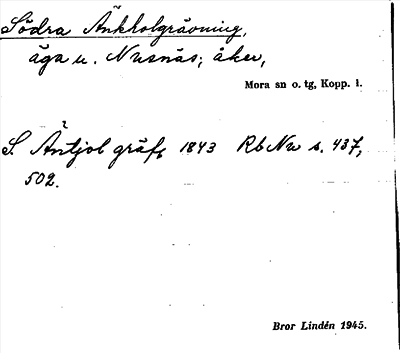 Södra Änkholgrävning,
äga u. Nusnäs; åker,
Mora sn o. tg, Kopp. l.
S. Äntjol gräft 1843 Rb Nu s. 437,
502.
Bror Lindén 1945.